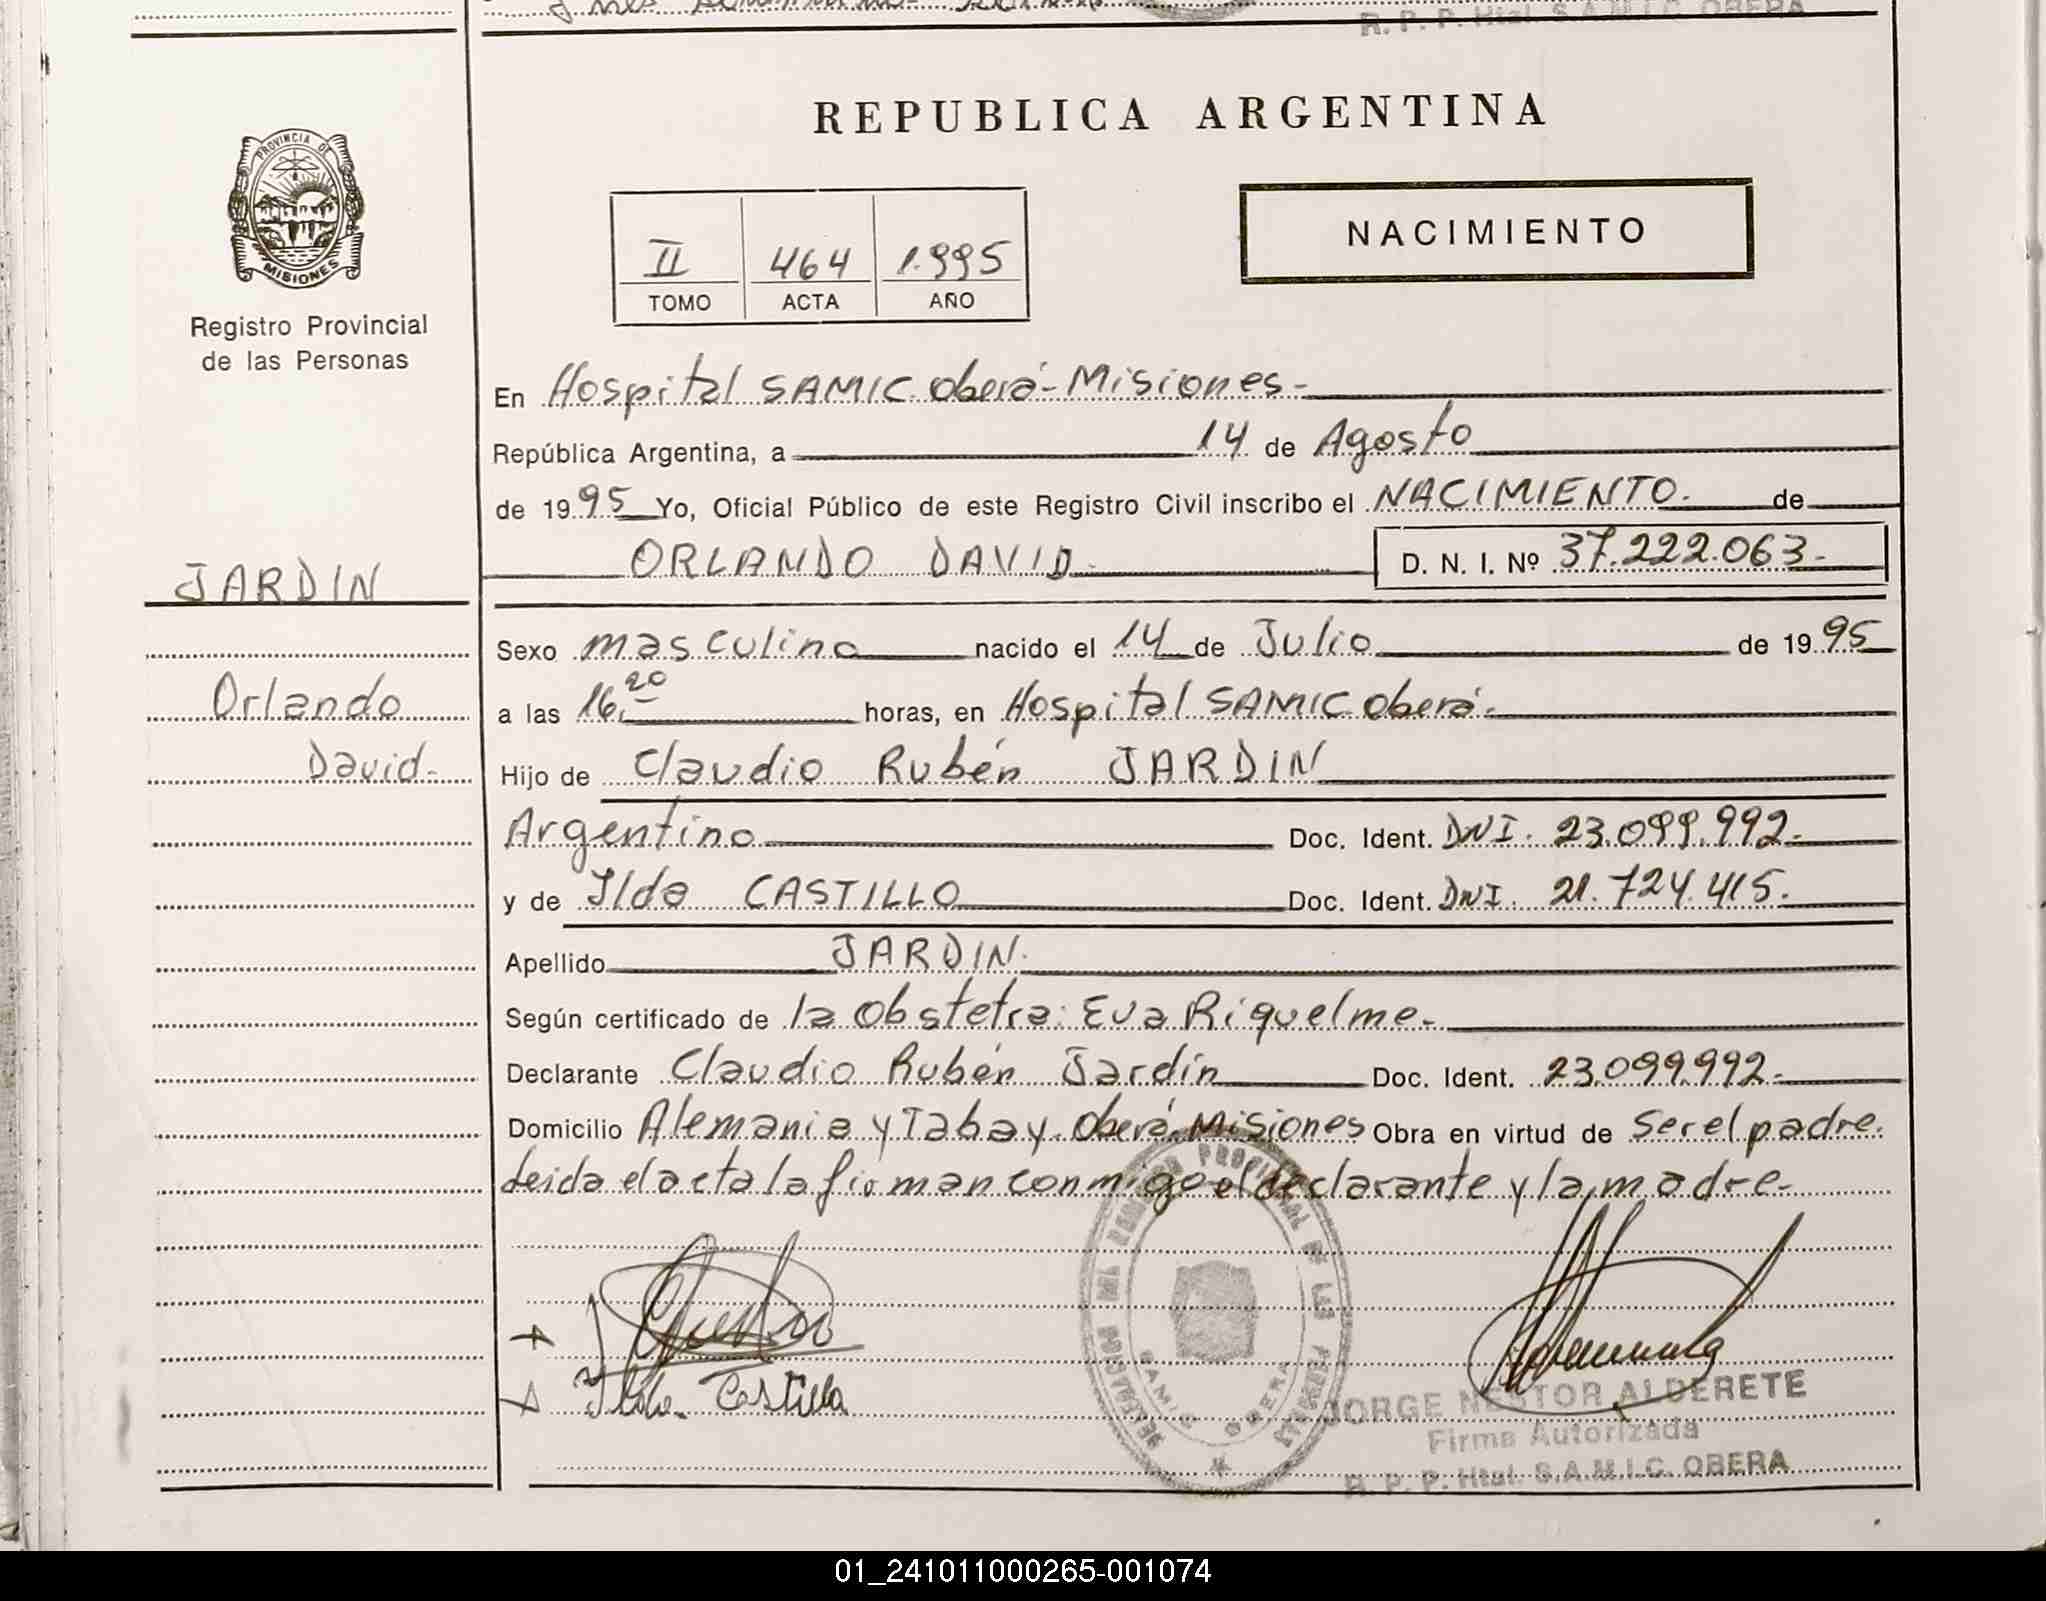 R. P. P. Htal. S.A.M.I.C. OBERA
PROVINCIA DE
MISIONES
Registro Provincial
de las Personas
JARDIN
Orlando
David-
REPUBLICA ARGENTINA
II 464 1.995
TOMO ACTA AÑO
NACIMIENTO
En Hospital SAMIC Oberá-Misiones-
República Argentina, a 14 de Agosto
de 1995 Yo, Oficial Público de este Registro Civil inscribo el NACIMIENTO. de
ORLANDO DAVID- D. N. I. Nº 37.222.063-
Sexo masculino nacido el 14 de Julio de 1995
a las 16,20 horas, en Hospital SAMIC Oberá-
Hijo de Claudio Rubén JARDIN
Argentino Doc. Ident. DNI. 23.099.992-
y de Ilda CASTILLO Doc. Ident. DNI. 21.724.415-
Apellido JARDIN.
Según certificado de la Obstetra: Eva Riquelme-
Declarante Claudio Rubén Jardín Doc. Ident. 23.099.992-
Domicilio Alemania y Tabay. Oberá. Misiones Obra en virtud de ser el padre.
Leida el acta la firman conmigo el declarante y la madre-
Ilda Castillo
SAMIC OBERA
JORGE NESTOR ALDERETE
Firma Autorizada
R. P. P. Htal. S.A.M.I.C. OBERA
01_241011000265-001074